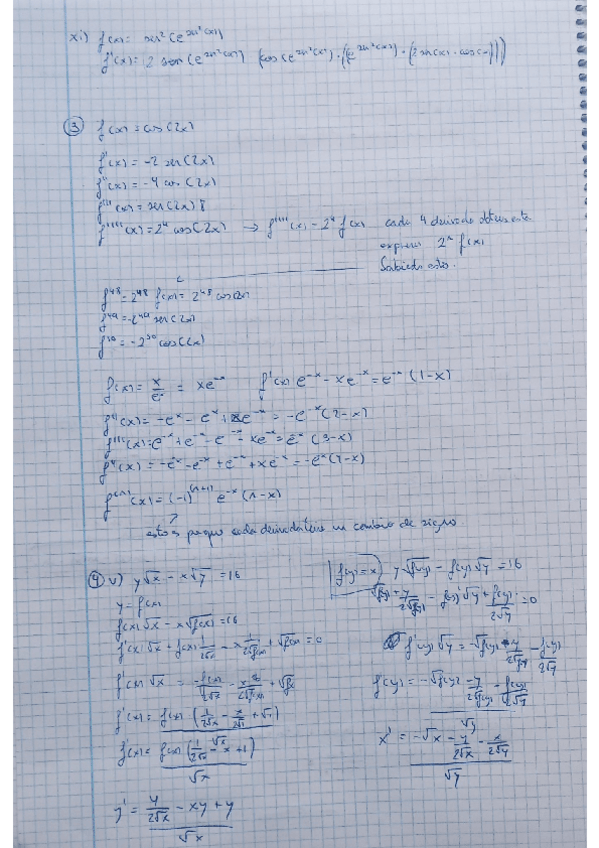 xi) f(x) = sen² (e^{sen²(x)})
f'(x) = 2 sen (e^{sen²(x)}) (cos(e^{sen²(x)}) · (e^{sen²(x)}) · (2 sen(x) · cos(x))))
③ f(x) = cos(2x)
f'(x) = -2 sen(2x)
f''(x) = -4 cos(2x)
f'''(x) = sen(2x) 8
f''''(x) = 2⁴ cos(2x) → f''''(x) = 2⁴ f(x) cada 4 derivada obtiene esta
expresión 2ˣ f(x)
Sabiendo esto.
f⁴⁸ = 2⁴⁸ f(x) = 2⁴⁸ cos2x
f⁴⁹ = -2⁴⁹ sen(2x)
f⁵⁰ = -2⁵⁰ cos(2x)
f(x) = x/eˣ = xe⁻ˣ f'(x) e⁻ˣ - xe⁻ˣ = e⁻ˣ (1-x)
f''(x) = -e⁻ˣ - e⁻ˣ + xe⁻ˣ = -e⁻ˣ (2-x)
f'''(x) = e⁻ˣ + e⁻ˣ - e⁻ˣ - xe⁻ˣ = e⁻ˣ (3-x)
f⁴(x) = -e⁻ˣ - e⁻ˣ + e⁻ˣ + xe⁻ˣ = -e⁻ˣ (4-x)
f⁽ⁿ⁾(x) = (-1)⁽ⁿ⁺¹⁾ e⁻ˣ (n-x)
esto es porque cada derivada tiene un cambio de signo.
④ v) y√x - x√y = 16
y = f(x)
f(x)√x - x√f(x) = 16
f'(x)√x + f(x) 1/2√x - x 1/2√f(x) + √f(x) = 0
f'(x) √x = -f(x)/2√x - x/2√f(x) + √fx
f'(x) = f(x) (1/2√x - x/2√x + √1)/
f'(x) = f(x) (1/2√x - x + 1)/√x
y' = y/2√x - xy + y/√x
f(y) = x y√f(y) - f(y)√y = 16
√f(y) + y/2√f(y) - f(y)'√y + f(y)/2√y = 0
f'(y)√y = -√f(y) - y/2√f(y) - f(y)/2√y
f(y) = -√f(y) - y/2√f(y) - f(y)/2√y/√y
x' = -√x - y/2√x - x/2√y/√y